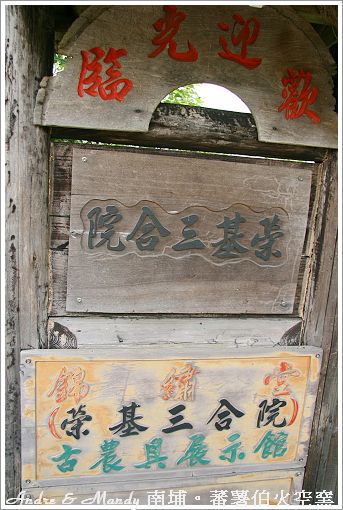 歡迎光臨
榮基三合院
錦繡堂
(榮基三合院)
古農具展示館
Andre & Mandy 南埔。蕃薯伯火空窯